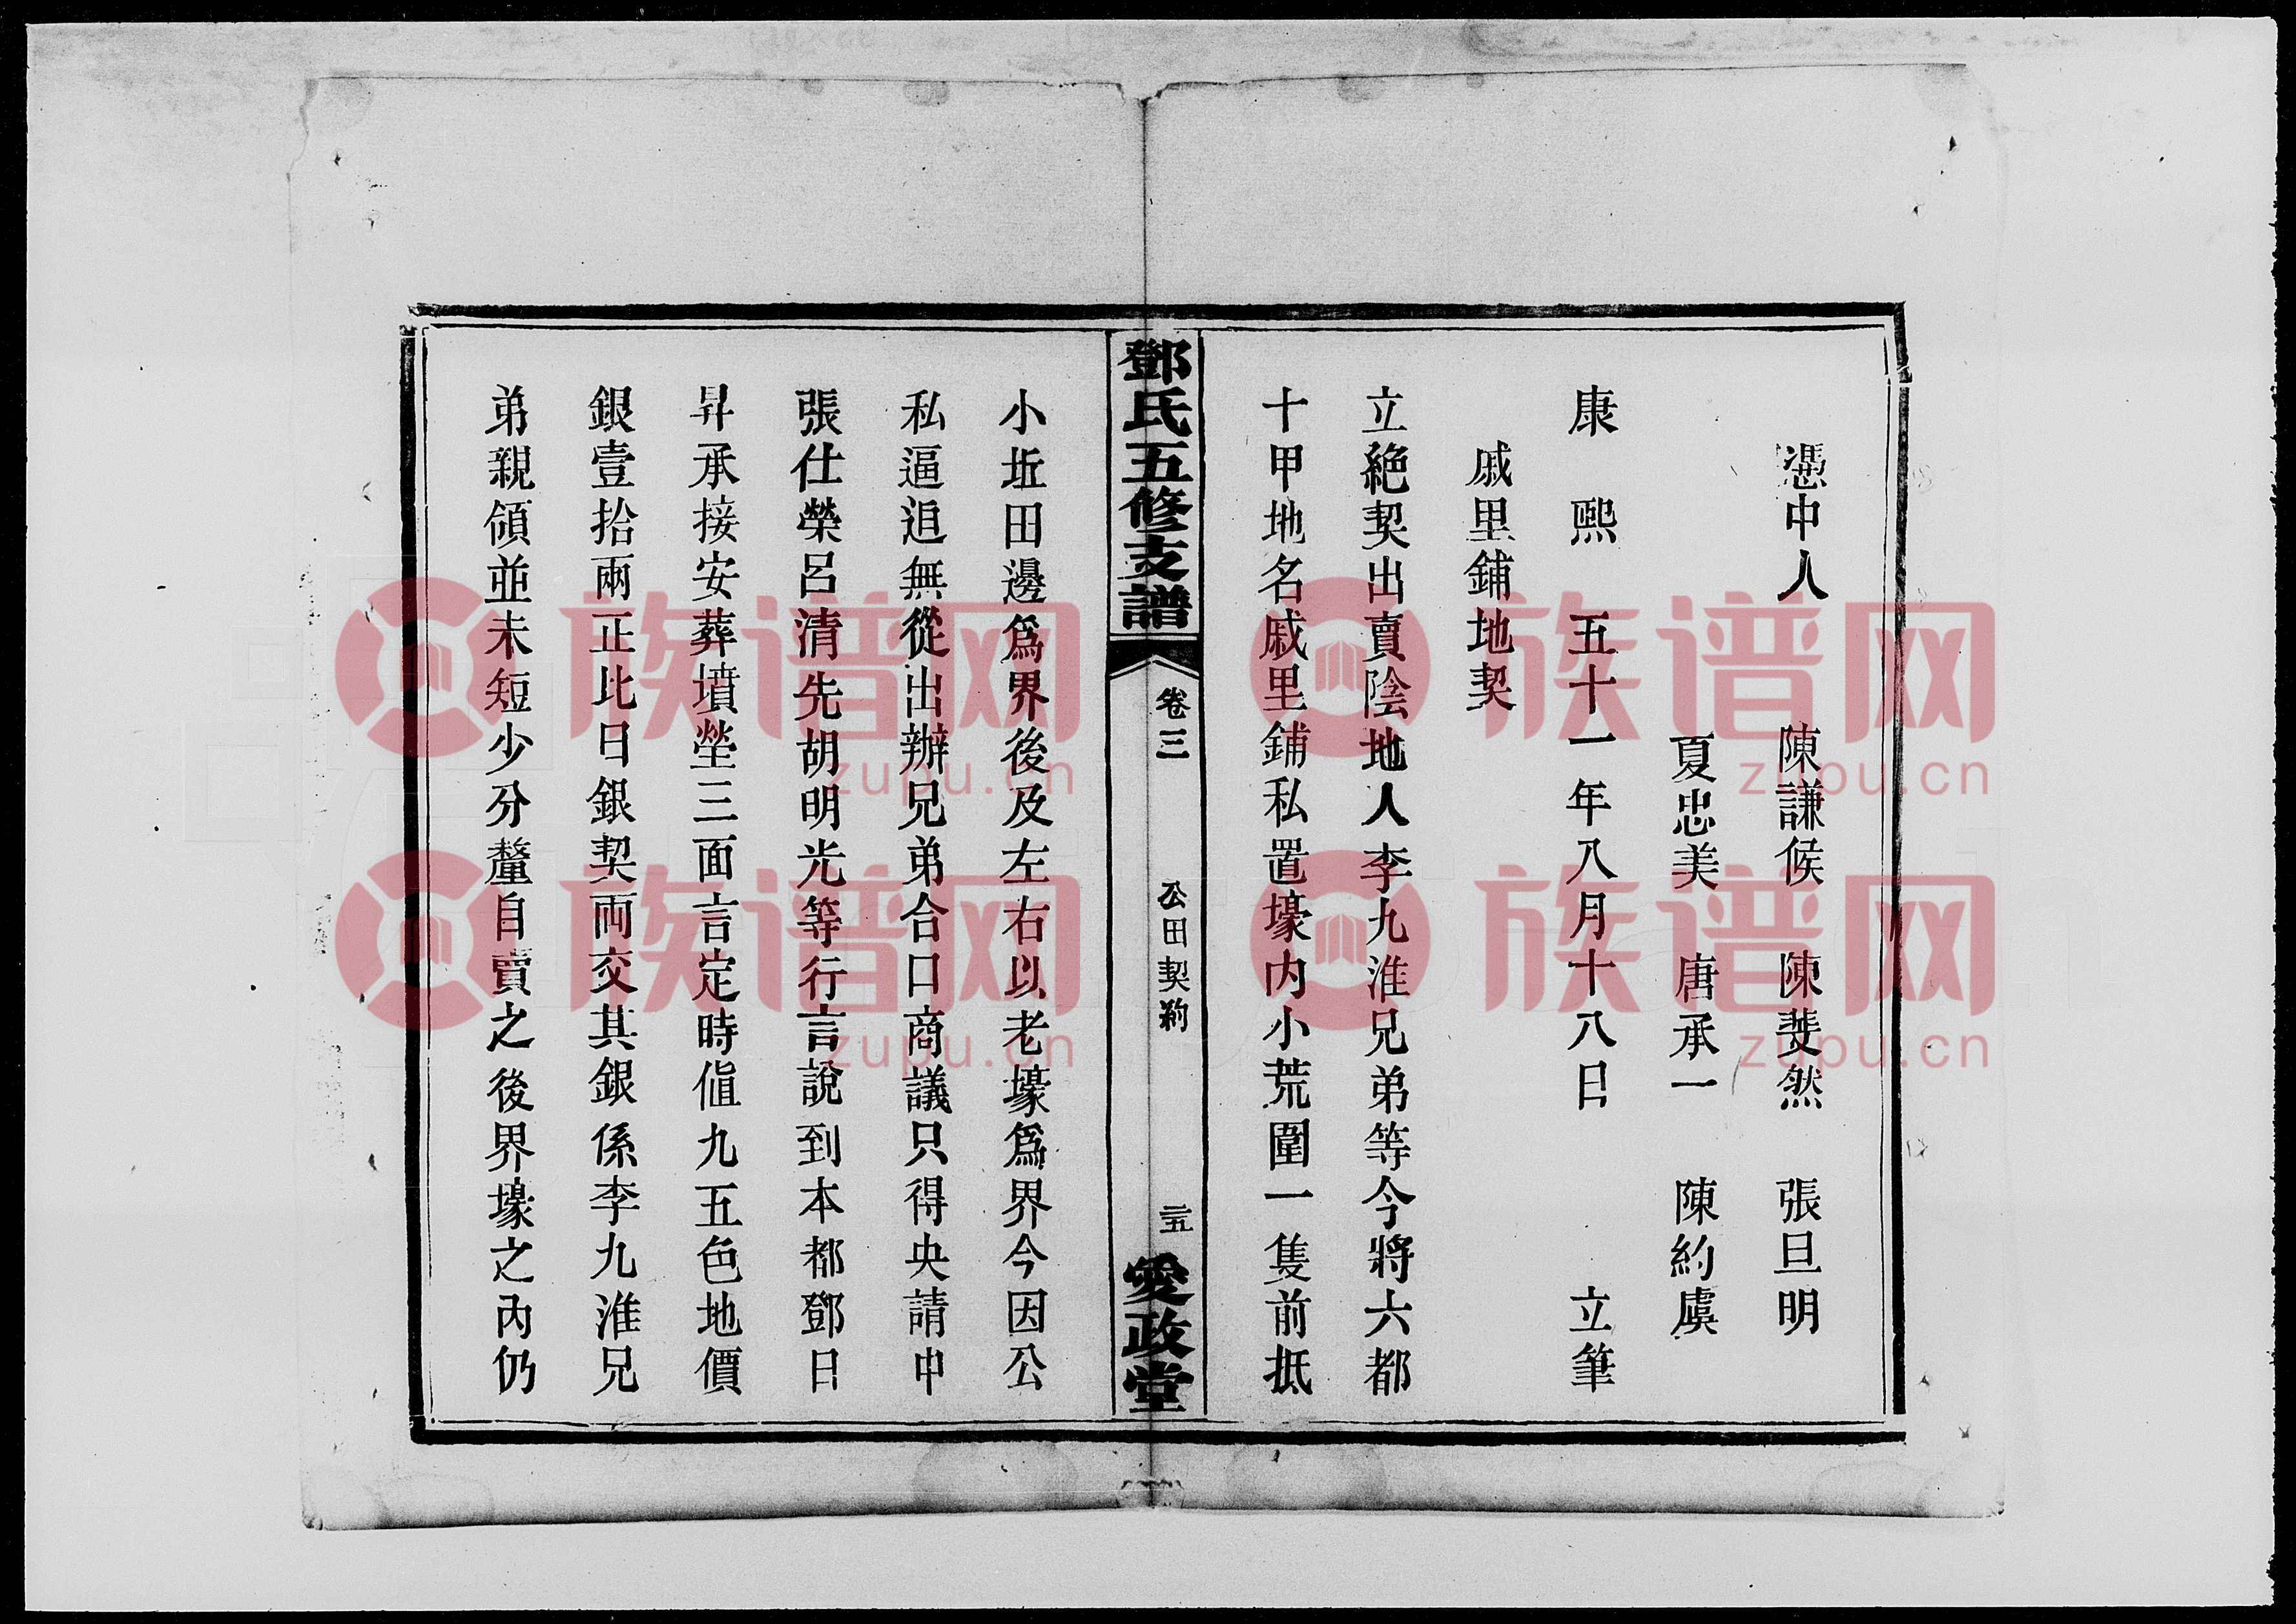 憑中人　陳謙候　陳斐然　張旦明
夏忠美　唐承一　陳約虞
康熙　五十一年八月十八日　立筆
戚里鋪地契
立絶契出賣陰地人李九淮兄弟等今將六都
十甲地名戚里鋪私置壕内小荒圍一隻前抵
鄧氏五修支譜
卷三
公田契約
三五
愛政堂
小坵田邊爲界後及左右以老壕爲界今因公
私逼迫無從出辦兄弟合口商議只得央請中
張仕榮呂清先胡明光等行言說到本都鄧日
昇承接安葬墳塋三面言定時値九五色地價
銀壹拾兩正比日銀契両交其銀係李九淮兄
弟親領並未短少分釐自賣之後界壕之內仍
族谱网
zupu.cn
族谱网
zupu.cn
族谱网
zupu.cn
族谱网
zupu.cn